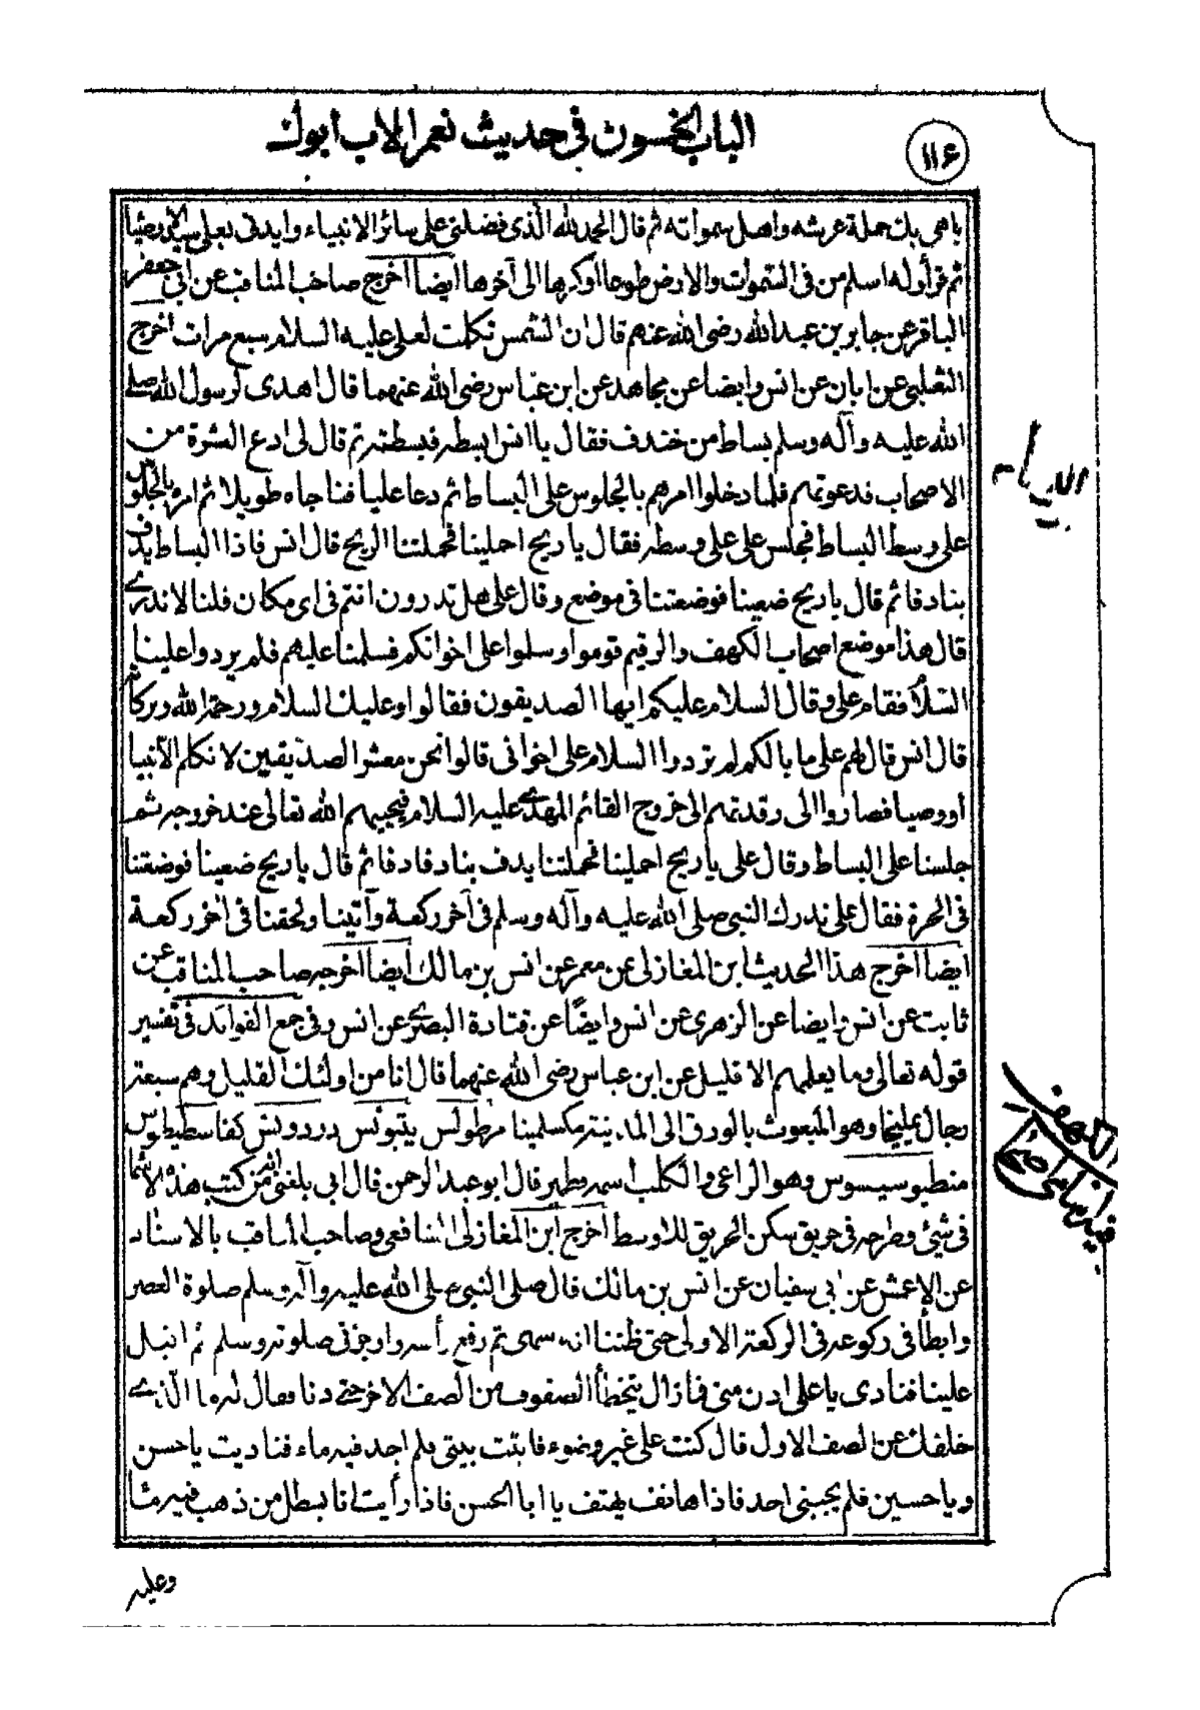 ١١٤
الباب الخمسون فى حديث نعم الاب ابوك
باهى بك حملة عرشه واهل سمواته ثم قال الحمد لله الذى فضلنى على سائر الانبياء وايدنى بعلى سيد الاوصياء
ثم قرأ وله اسلم من فى السموات والارض طوعا اوكرها الى آخرها ايضا اخرج صاحب المناقب عن ابى جعفر
الباقر عن جابر بن عبد الله رضى الله عنهم قال ان الشمس تكلمت لعلى عليه السلام سبع مرات اخرج
الثعلبى عن ابان عن انس وايضا عن مجاهد عن ابن عباس رضى الله عنهما قال اهدى لرسول الله صلى
الله عليه وآله وسلم بساط من خندف فقال يا انس ابسطه فبسطته ثم قال لى ادع العشرة من
الاصحاب فدعوتهم فلما دخلوا امرهم بالجلوس على البساط ثم دعا عليا فناجاه طويلا ثم امره بالجلوس
على وسط البساط فجلس على على وسطه فقال يا ريح احملينا فحملتنا الريح قال انس فاذا البساط يدف
بنا دفا ثم قال يا ريح ضعينا فوضعتنا فى موضع وقال على هل تدرون انتم فى اى مكان قلنا لا ندرى
قال هذا موضع اصحاب الكهف والرقيم قوموا وسلموا على اخوانكم فسلمنا عليهم فلم يردوا علينا
السلام فقام على وقال السلام عليكم ايها الصديقون فقالوا وعليك السلام ورحمة الله وبركاته
قال انس قال لهم على ما بالكم لم تردوا السلام على اخوانى قالوا نحن معشر الصديقين لا نكلم الا نبيا
او وصيا فصاروا الى رقدتهم الى خروج القائم المهدى عليه السلام فيحييهم الله تعالى عند خروجه ثم
جلسنا على البساط وقال على يا ريح احملينا فحملتنا يدف بنا دفا دفا ثم قال يا ريح ضعينا فوضعتنا
فى الحرة فقال على ندرك النبى صلى الله عليه وآله وسلم فى آخر ركعة وآتينا ولحقنا فى اخر ركعة
ايضا اخرج هذا الحديث ابن المغازلى عن معمر عن انس بن مالك ايضا اخرجه صاحب المناقب عن
ثابت عن انس وايضا عن الزهرى عن انس وايضًا عن قتادة البصرى عن انس وفى جمع الفوائد فى تفسير
قوله تعالى وما يعلمهم الا قليل عن ابن عباس رضى الله عنهما قال انا من اولئك القليل وهم سبعة
رجال يمليخا وهو المبعوث بالورق الى المدينة مكسلمينا مرطولس يثبونس دردونس كفاسطيطوس
منطبوسيسوس وهو الراعى والكلب اسمه قطمير قال ابو عبد الرحمن قال ابى بلغنى انه من كتب هذه الاسماء
فى شئ وطرحه فى حريق سكن الحريق للاوسط اخرج ابن المغازلى الشافعى وصاحب المناقب بالاسناد
عن الاعمش عن ابى سفيان عن انس بن مالك قال صلى النبى صلى الله عليه وآله وسلم صلوة العصر
وابطأ فى ركوعه فى الركعة الاولى حتى ظننا انه سهى ثم رفع رأسه واوجز فى صلوته وسلم ثم اقبل
علينا فنادى يا على ادن منى فما زال يتخطأ الصفوف من الصف الاخر حتى دنا وقال له ما الذى
خلفك عن الصف الاول قال كنت على غير وضوء فاتيت بيتى فلم اجد فيه ماء فناديت يا حسن
ويا حسين فلم يجبنى احد فاذا هاتف يهتف يا ابا الحسن فاذا رأيت انا بسطل من ذهب فيه ماء
وعليه